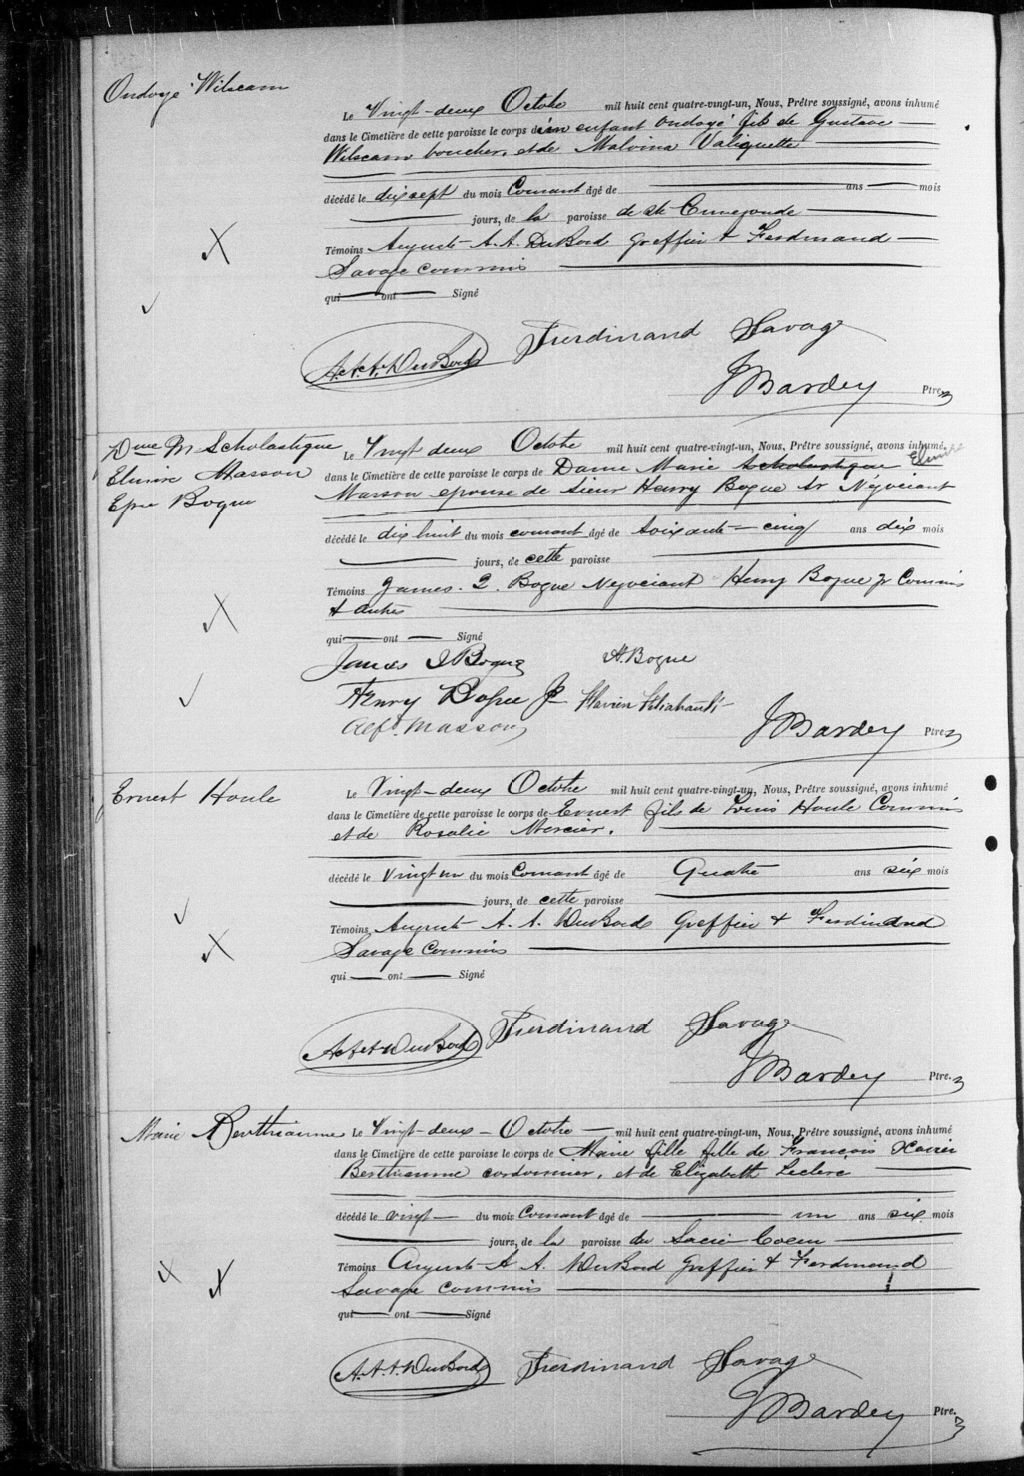 Ondoyé Wilscam
Le Vingt-deux Octobre mil huit cent quatre-vingt-un, Nous, Prêtre soussigné, avons inhumé
dans le Cimetière de cette paroisse le corps d'un enfant ondoyé fils de Gustave
Wilscam boucher, et de Malvina Valiquette
décédé le dix sept du mois Courant âgé de ans mois
jours, de la paroisse de Ste Cunegonde
Témoins Auguste A. A. DuBord Greffier & Ferdinand
Savage commis
qui ont Signé
A.A.A. DuBord Ferdinand Savage
J Bardey Ptre.
Dme M Scholastique
Elmire Masson
Epse Bogue
Le Vingt deux Octobre mil huit cent quatre-vingt-un, Nous, Prêtre soussigné, avons inhumé,
dans le Cimetière de cette paroisse le corps de Dame Marie Scholastique Elmire
Masson epouse de Sieur Henry Bogue Sr Négociant
décédé le dix huit du mois courant âgé de Soixante-cinq ans dix mois
jours, de cette paroisse
Témoins James. Bogue Négociant Henry Bogue jr Commis
& autres
qui ont Signé
James Bogue H. Bogue
Henry Bogue Jr
Alf. Masson J Bardey Ptre
Ernest Houle
Le Vingt-deux Octobre mil huit cent quatre-vingt-un, Nous, Prêtre soussigné, avons inhumé
dans le Cimetière de cette paroisse le corps de Ernest fils de Louis Houle Commis
et de Rosalie Mercier.
décédé le Vingt un du mois Courant âgé de Quatre ans six mois
jours, de cette paroisse
Témoins Auguste A. A. DuBord Greffier & Ferdinand
Savage Commis
qui ont Signé
A.A.A DuBord Ferdinand Savage
J Bardey Ptre.
Marie Berthiaume
Le Vingt-deux Octobre mil huit cent quatre-vingt-un, Nous, Prêtre soussigné, avons inhumé
dans le Cimetière de cette paroisse le corps de Marie fille fille de François Xavier
Berthiaume cordonnier, et de Elizabeth Leclerc
décédé le vingt du mois Courant âgé de un ans six mois
jours, de la paroisse du Sacré Coeur
Témoins Auguste A A. DuBord Greffier & Ferdinand
Savage commis
qui ont Signé
A.A.A. DuBord Ferdinand Savage
J Bardey Ptre.